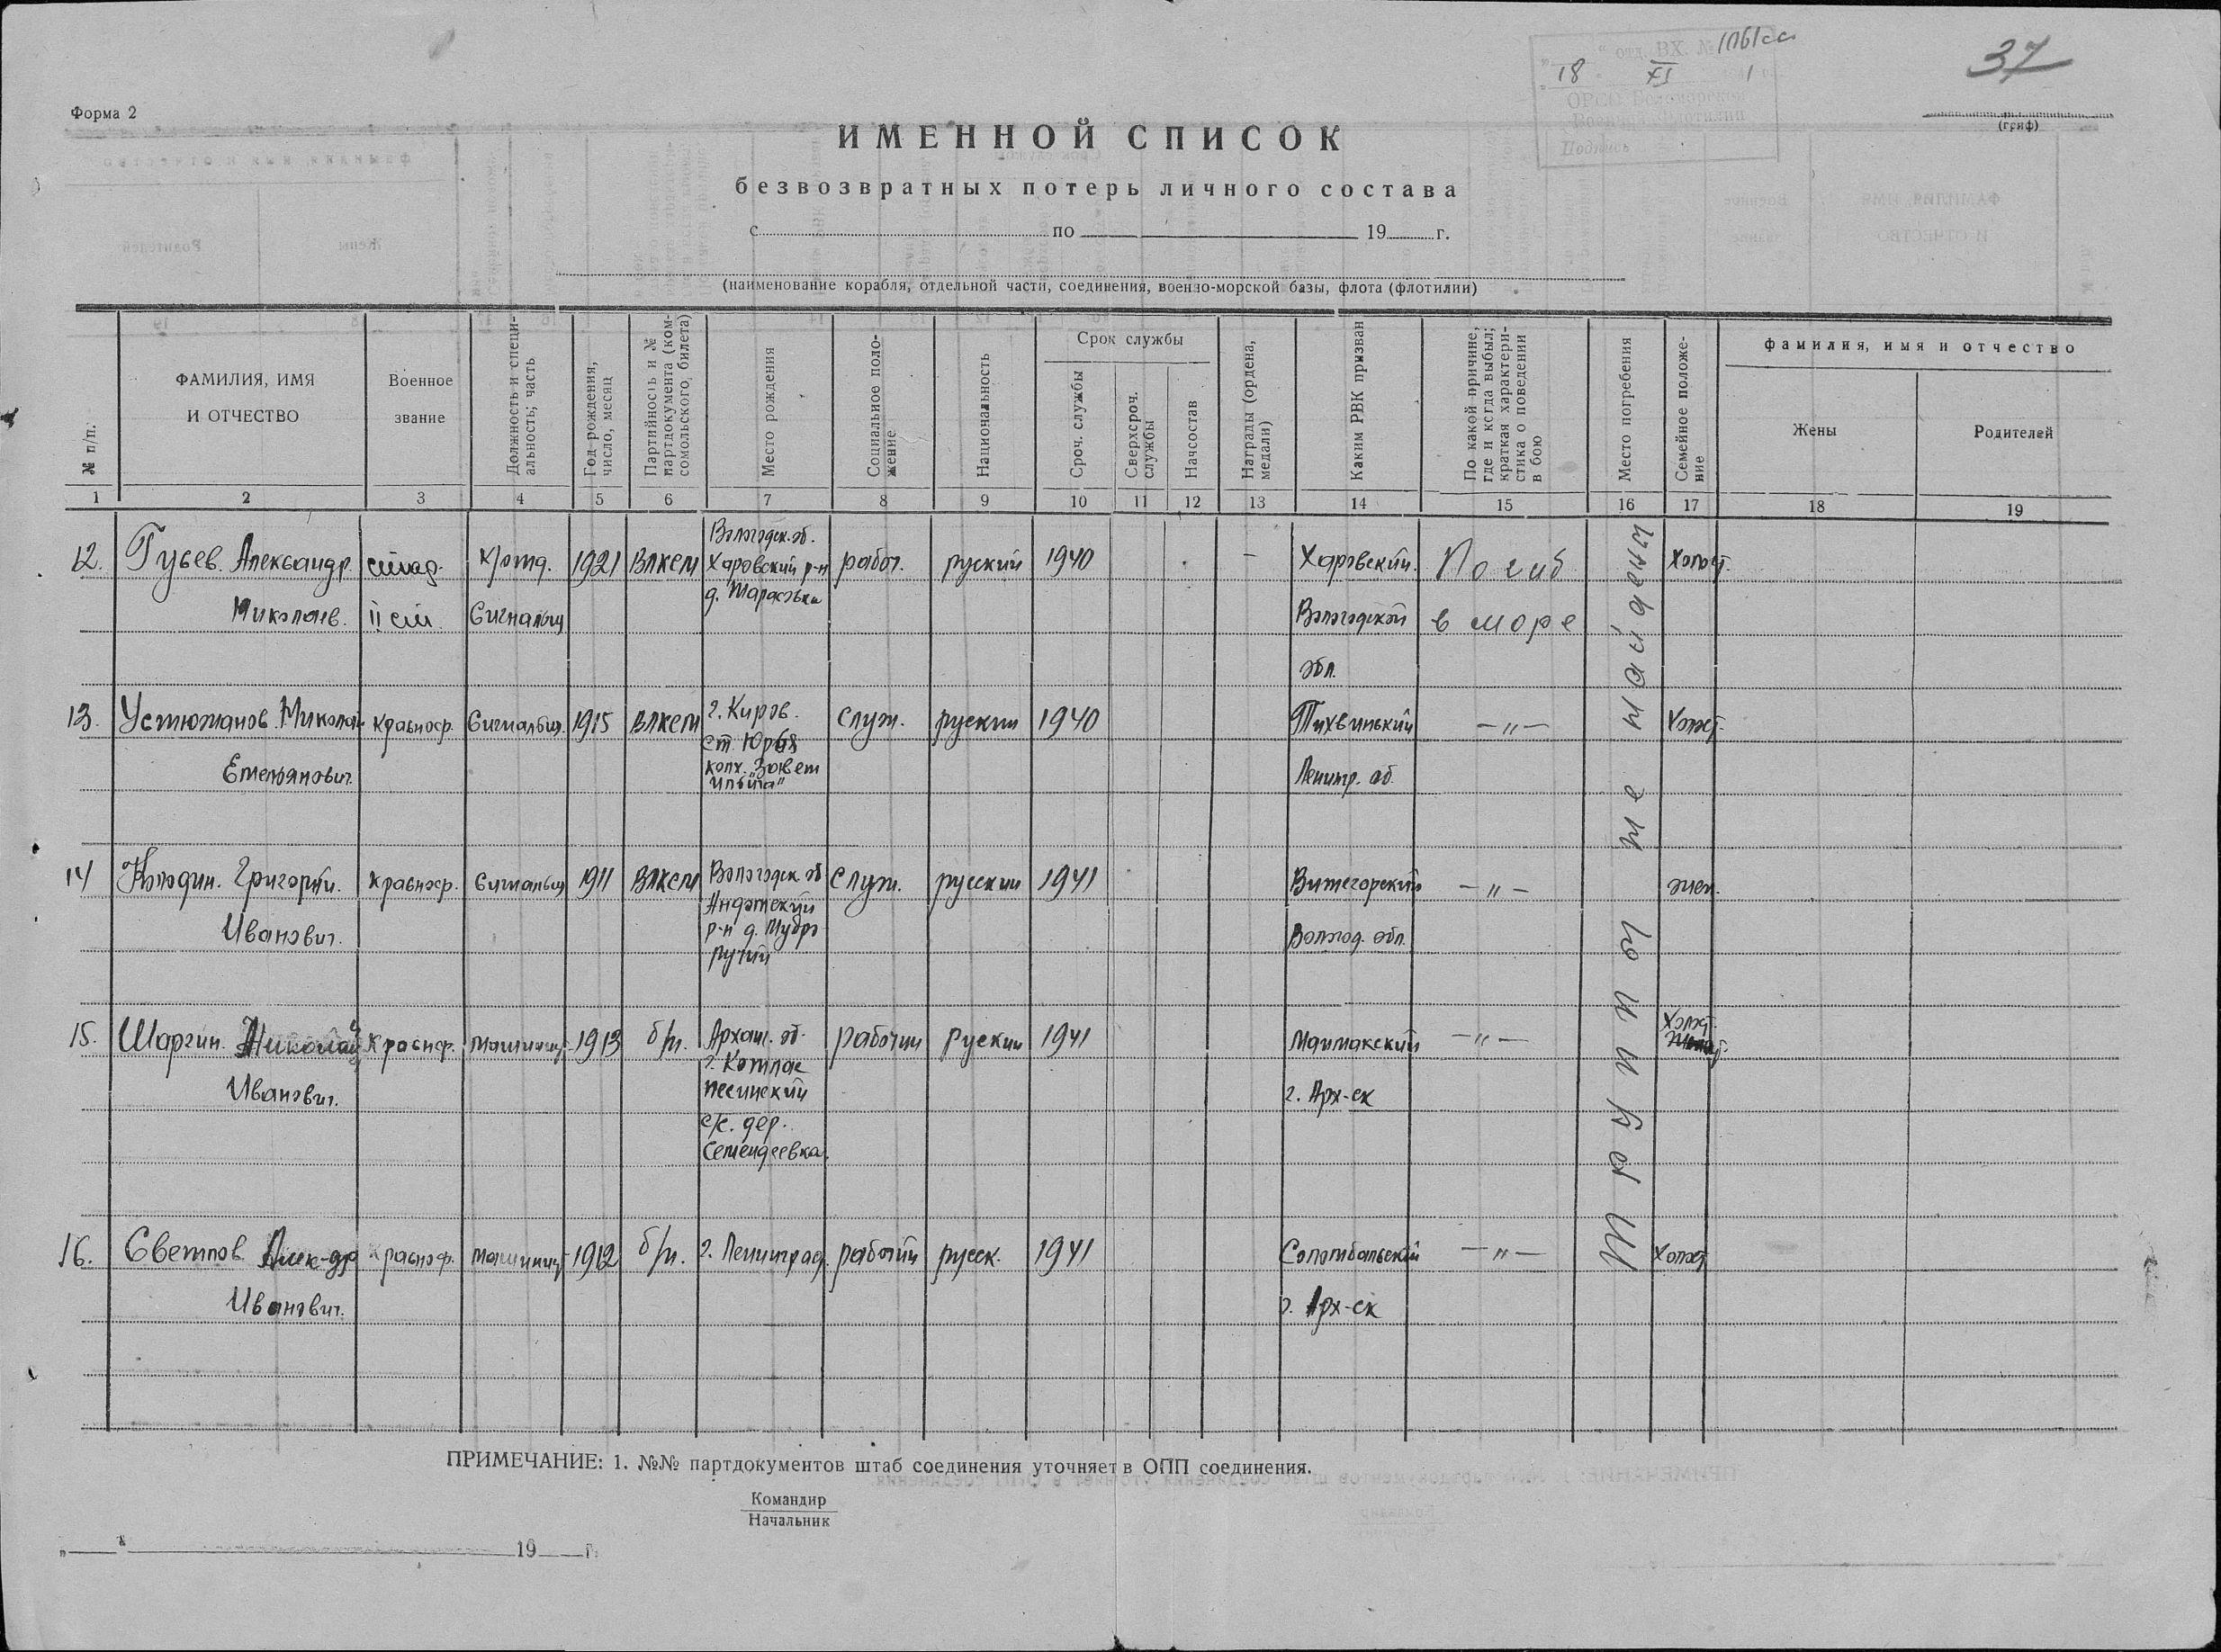 отд. ВХ. №
18 XI 1
Подпись
37
Форма 2
(гриф)
ИМЕННОЙ СПИСОК
безвозвратных потерь личного состава
с по 19 г.
(наименование корабля, отдельной части, соединения, военно-морской базы, флота (флотилии)
№ п/п.
ФАМИЛИЯ, ИМЯ
И ОТЧЕСТВО
Военное
звание
Должность и специ-
альность; часть
Год рождения,
число, месяц
Партийность и №
партдокумента (ком-
сомольского, билета)
Место рождения
Социальное поло-
жение
Национальность
Срок службы
Сроч. службы
Сверхсроч.
службы
Начсостав
Награды (ордена,
медали)
Каким РВК призван
По какой причине,
где и когда выбыл;
краткая характери-
стика о поведении
в бою
Место погребения
Семейное положе-
ние
фамилия, имя и отчество
Жены
Родителей
1 2 3 4 5 6 7 8 9 10 11 12 13 14 15 16 17 18 19
Вологодск. об.
12. Гусев. Александр. К/отд. 1921 ВЛКСМ Харовский р-н работ. руский 1940 — Харовский. Погиб Холост.
д. Тарасовка
Николаев. II ст. Сигнальщ Вологодской в море
обл.
13. Устюжанов Николай Краснофр. Сигнальщ. 1915 ВЛКСМ г. Киров. служ. руский 1940 Тихвинский —〃— Холост.
ст. Юрья
колх. „Завет
Ильича"
Емельянович. Ленингр. об.
14 Колодин. Григорий. Краснофр. Сигнальщ 1911 ВЛКСМ Вологодск об служ. русский 1941 Витегорский —〃— жен.
Андомский
р-н д.
Иванович. Вологод. обл.
15. Шаргин. Николай Краснфр. машинист 1913 б/п. Арханг. об. рабочий руский 1941 Маймакский —〃— Холост.
г. Котлас
Иванович. г. Арх-ск
с/с. дер.
Семендеевка.
16. Светлов Алек-др Краснофр. машинист 1912 б/п. г. Ленинград. рабочий русск. 1941 Соломбальский —〃— Холост
Иванович. г. Арх-ск
Трупы не найдены
ПРИМЕЧАНИЕ: 1. №№ партдокументов штаб соединения уточняет в ОПП соединения.
Командир
Начальник
„ " 19 г.